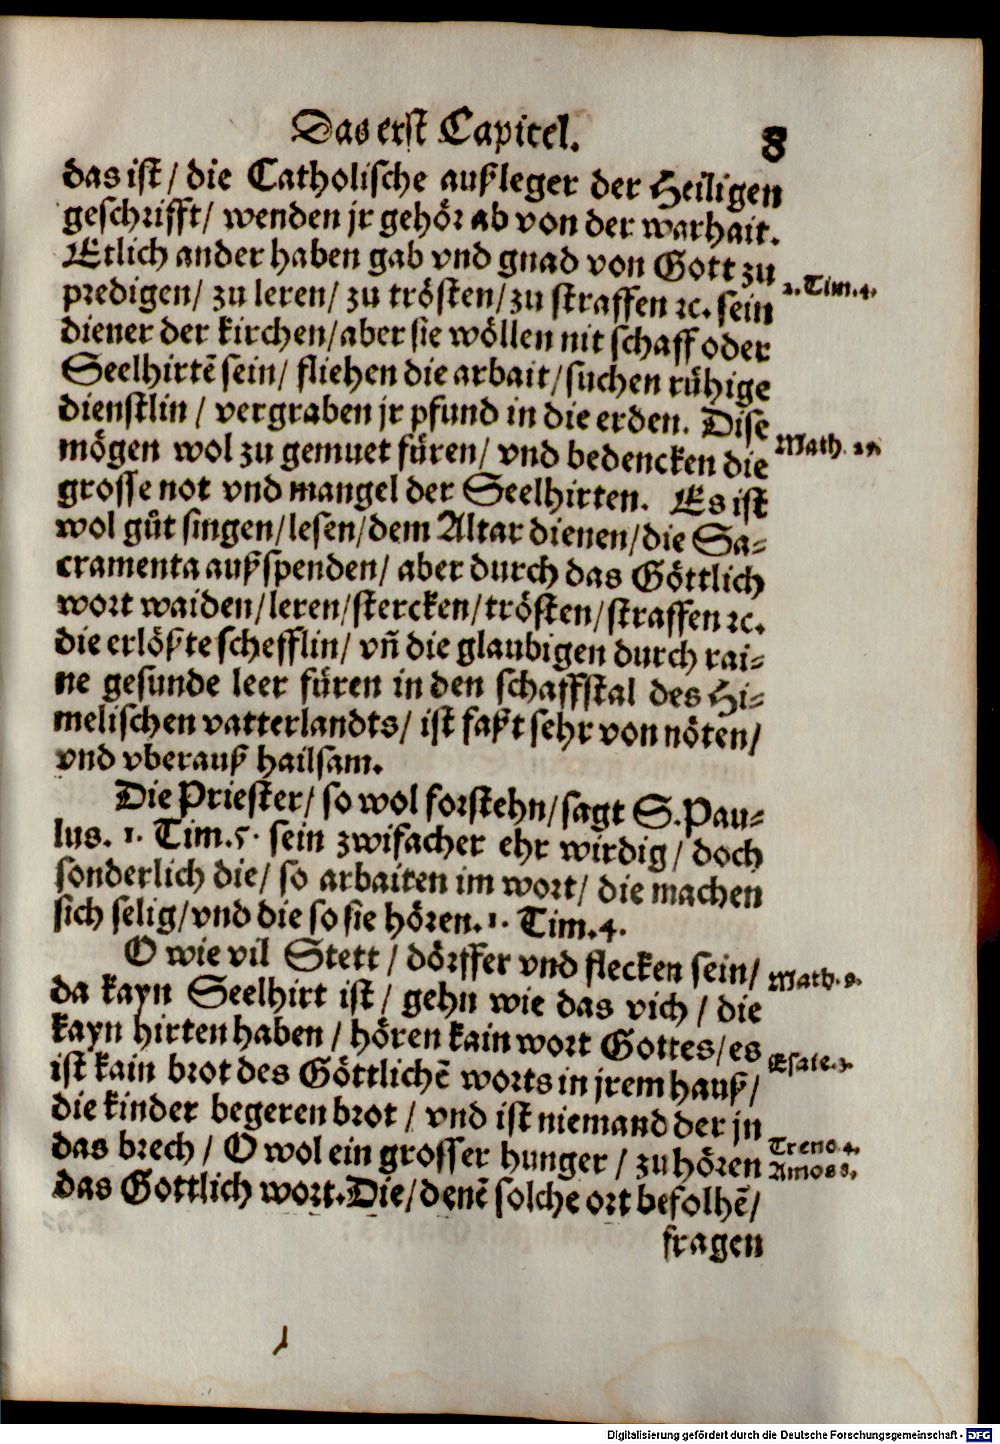 Das erst Capitel.
8
das ist / die Catholische außleger der Heiligen
geschrifft / wenden jr gehör ab von der warhait.
Etlich ander haben gab vnd gnad von Gott zu
predigen / zu leren / zu trösten / zu straffen ꝛc. sein
2. Tim. 4.
diener der kirchen / aber sie wöllen nit schaff oder
Seelhirtẽ sein / fliehen die arbait / suchen růhige
dienstlin / vergraben jr pfund in die erden. Dise
mögen wol zu gemuet füren / vnd bedencken die
Math. 25.
grosse not vnd mangel der Seelhirten. Es ist
wol gůt singen / lesen / dem Altar dienen / die Sa-
cramenta außspenden / aber durch das Göttlich
wort waiden / leren / stercken / trösten / straffen ꝛc.
die erlößte schefflin / vñ die glaubigen durch rai-
ne gesunde leer füren in den schaffstal des Hi-
melischen vatterlandts / ist faßt sehr von nöten /
vnd vberauß hailsam.
Die Priester / so wol forstehn / sagt S. Pau-
lus. 1. Tim. 5. sein zwifacher ehr wirdig / doch
sonderlich die / so arbaiten im wort / die machen
sich selig / vnd die so sie hören. 1. Tim. 4.
O wie vil Stett / dörffer vnd flecken sein /
Math. 9.
da kayn Seelhirt ist / gehn wie das vich / die
kayn hirten haben / hören kain wort Gottes / es
Esaie. 3.
ist kain brot des Göttlichẽ worts in jrem hauß /
die kinder begeren brot / vnd ist niemand der jn
das brech / O wol ein grosser hunger / zu hören
Treno 4.
Amos 8.
das Gottlich wort. Die / denẽ solche ort befolhẽ /
fragen
Digitalisierung gefördert durch die Deutsche Forschungsgemeinschaft - DFG